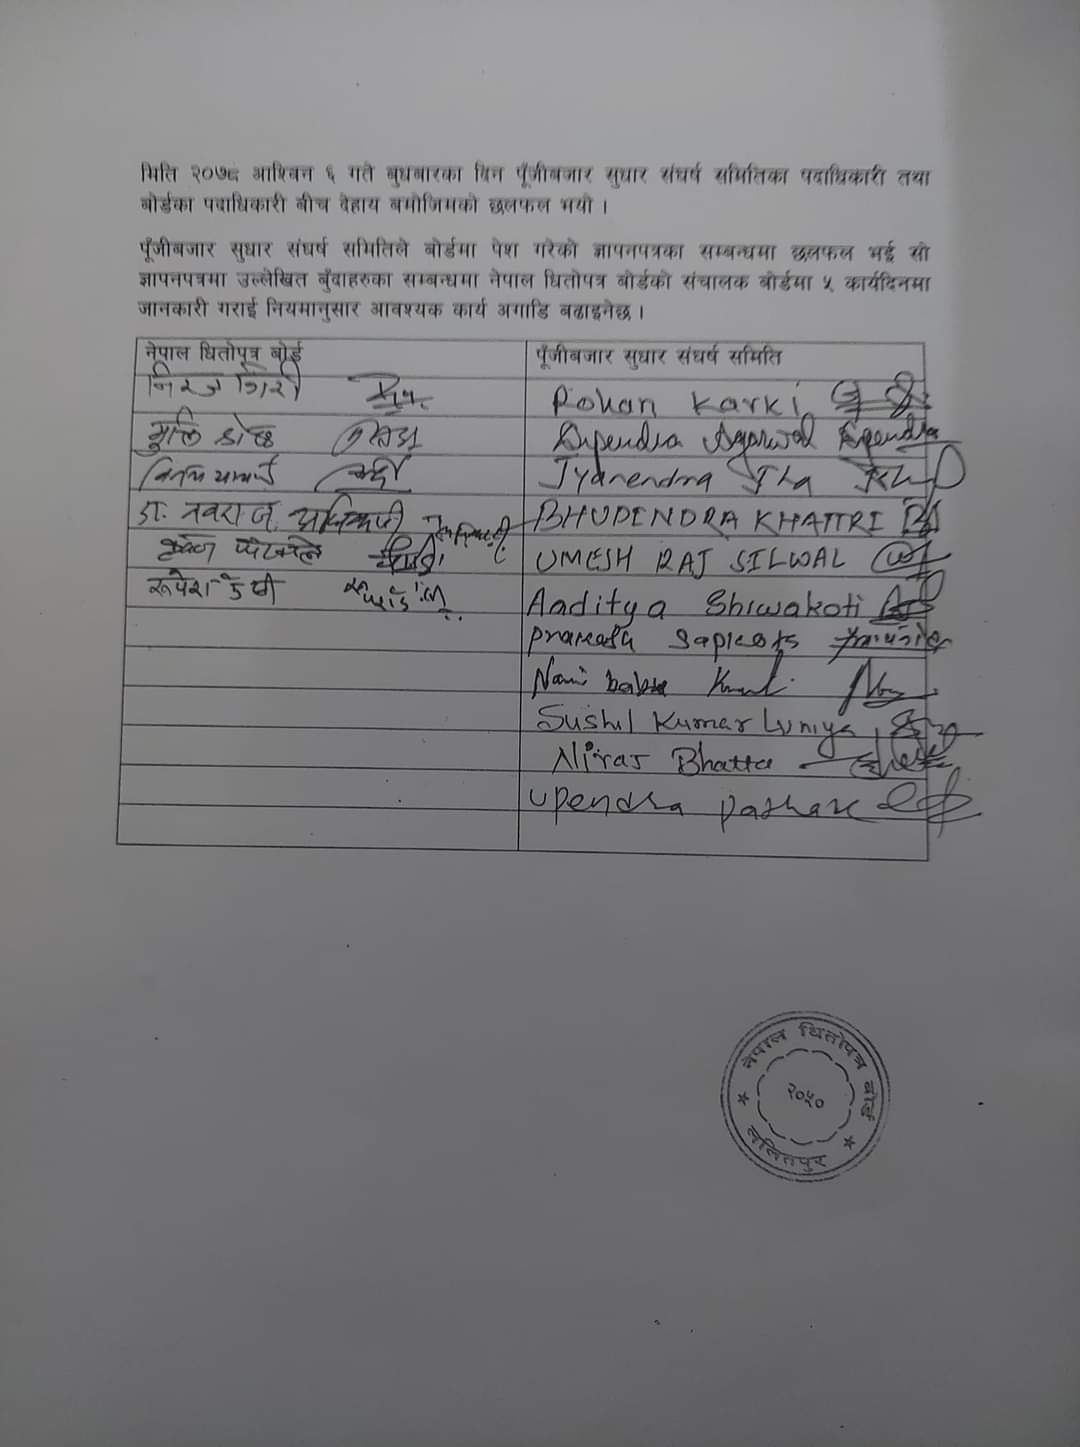 मिति २०७८ आश्विन ६ गते बुधबारका दिन पूँजीबजार सुधार संघर्ष समितिका पदाधिकारी तथा
बोर्डका पदाधिकारी बीच देहाय बमोजिमको छलफल भयो ।
पूँजीबजार सुधार संघर्ष समितिले बोर्डमा पेश गरेको ज्ञापनपत्रका सम्बन्धमा छलफल भई सो
ज्ञापनपत्रमा उल्लेखित बुँदाहरुका सम्बन्धमा नेपाल धितोपत्र बोर्डको संचालक बोर्डमा ५ कार्यदिनमा
जानकारी गराई नियमानुसार आवश्यक कार्य अगाडि बढाइनेछ ।
नेपाल धितोपत्र बोर्ड पूँजीबजार सुधार संघर्ष समिति
निरज गिरी Rohan Karki
Dipendra Agarwal Dipendra
Jyanendra Jha
डा. नवराज अधिकारी BHUPENDRA KHATTRI
UMESH RAJ SILWAL
रुपेश के सी Aaditya Shiwakoti
Sapkota
Sushil Kumar Luniya
Niraj Bhatta
Upendra
नेपाल धितोपत्र बोर्ड
२०५०
ललितपुर